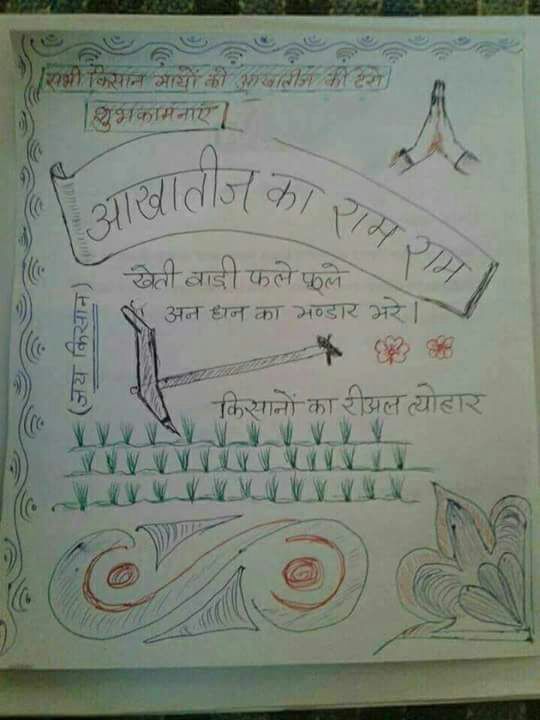 सभी किसान भायों को आखातीज की ढेरो
शुभकामनाएं
आखातीज का राम राम
खेती वाडी फले फूले
अन धन का भण्डार भरे।
(जय किसान)
किसानों का रीअल त्योहार